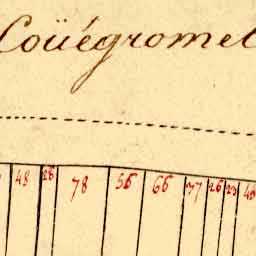 Coüégromel
48 28 78 56 66 37 26 23